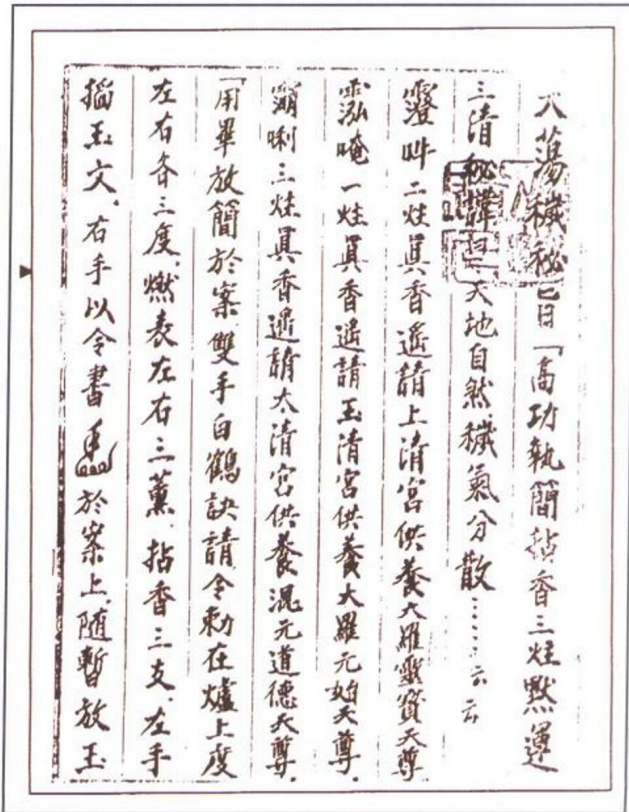 大蕩穢秘 曰「高功執簡拈香三炷默運
三清秘諱 天地自然穢氣分散……云云
霐晻一炷真香遥請玉清宮供養大羅元始天尊.
二炷真香遥請上清宮供養大羅靈寶天尊
三炷真香遥請太清宮供養混元道德天尊.
「用畢放簡於案雙手白鶴訣請令勅在爐上度
左右各三度.燃表左右三薰.拈香三支.左手
掐玉文.右手以令書 於案上.随暫放玉